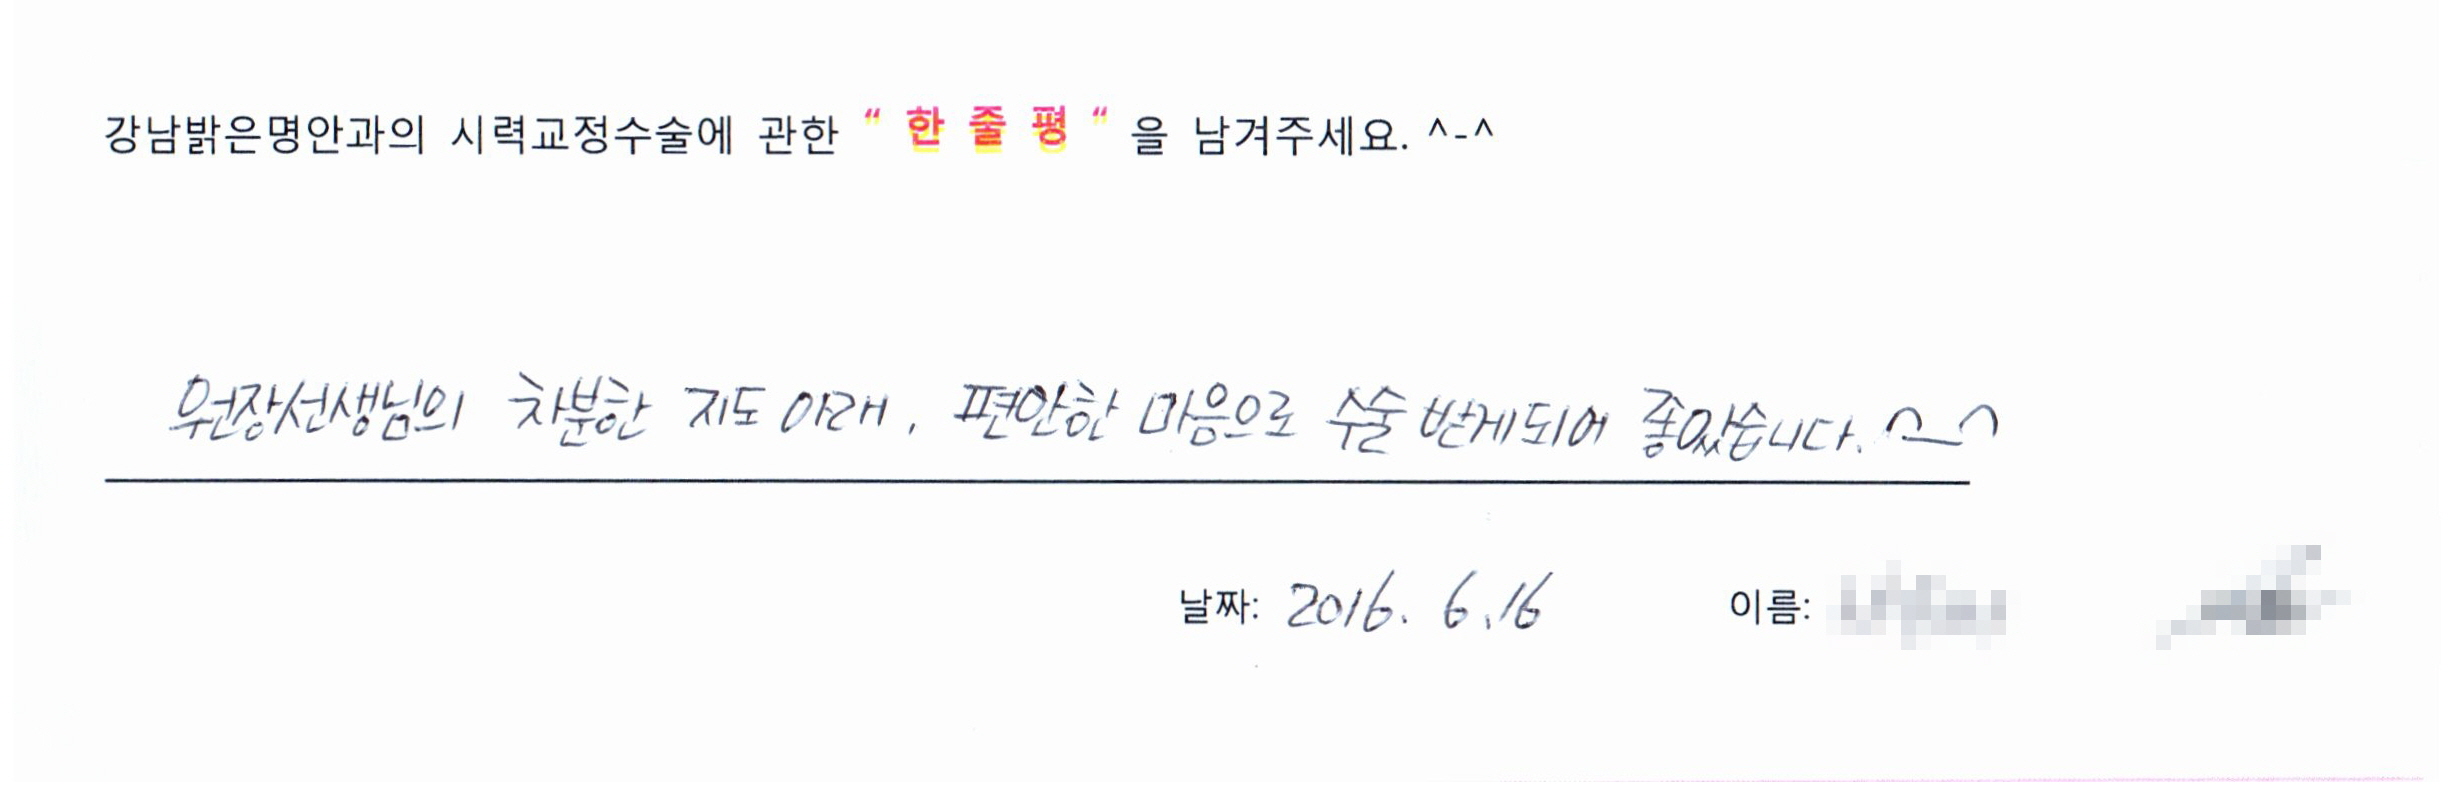 강남밝은명안과의 시력교정수술에 관한 “ 한 줄 평 “ 을 남겨주세요. ^-^
원장선생님의 차분한 지도 아래, 편안한 마음으로 수술 받게되어 좋았습니다. ^_^
날짜: 2016. 6. 16 이름: